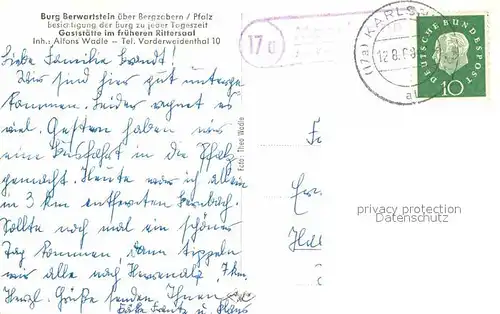 Burg Berwartstein über Bergzabern / Pfalz
besichtigung der Burg zu jeder Tageszeit
Gaststätte im früheren Rittersaal
Inh.: Alfons Wadle – Tel. Vorderweidenthal 10
Liebe Familie Brandt!
Wir sind hier gut unterge
kommen. Leider regnet es
viel. Gestern haben wir
eine Busfahrt in die Pfalz
gemacht. Heute war ich allein
in 3 km entfernten
Sollte noch mal ein schöner
Tag kommen, dann tippeln
wir alle nach Herrenalb, 7 km.
Herzl. Grüße senden Ihnen
u. Hans
Foto: Theo Wadle
17a
(17a) KARLS
12.8.6
DEUTSCHE BUNDESPOST
10
Fa
privacy protection
Datenschutz